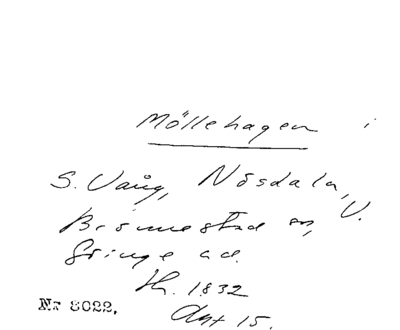 Möllehagen i
S. Vång, Nösdala,
Brönnestad sn, V.
Göinge hd.
Th. 1832
Akt 15.
Nr 8022.